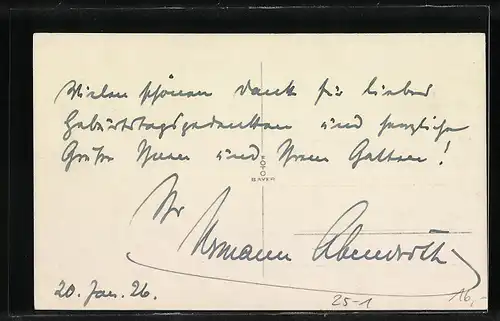 Vielen schönen Dank für liebes
Geburtstagsgedenken und herzliche
Grüße Ihnen und Ihrem Gatten!
FOTO
BAYER
Ihr
Hermann Abendroth
20. Jan. 26.
25-1
16,-